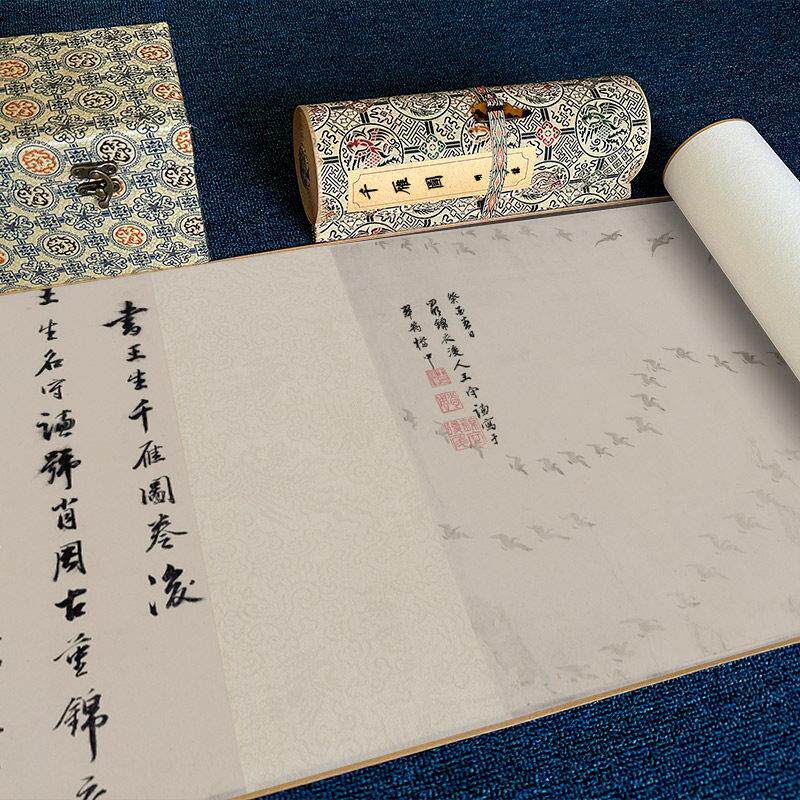 千雁圖 明
癸丑夏日
錦衣後人王守謙寫于
翠
中
書王生千雁圖卷後
王生名守謙號肖周古堇錦衣